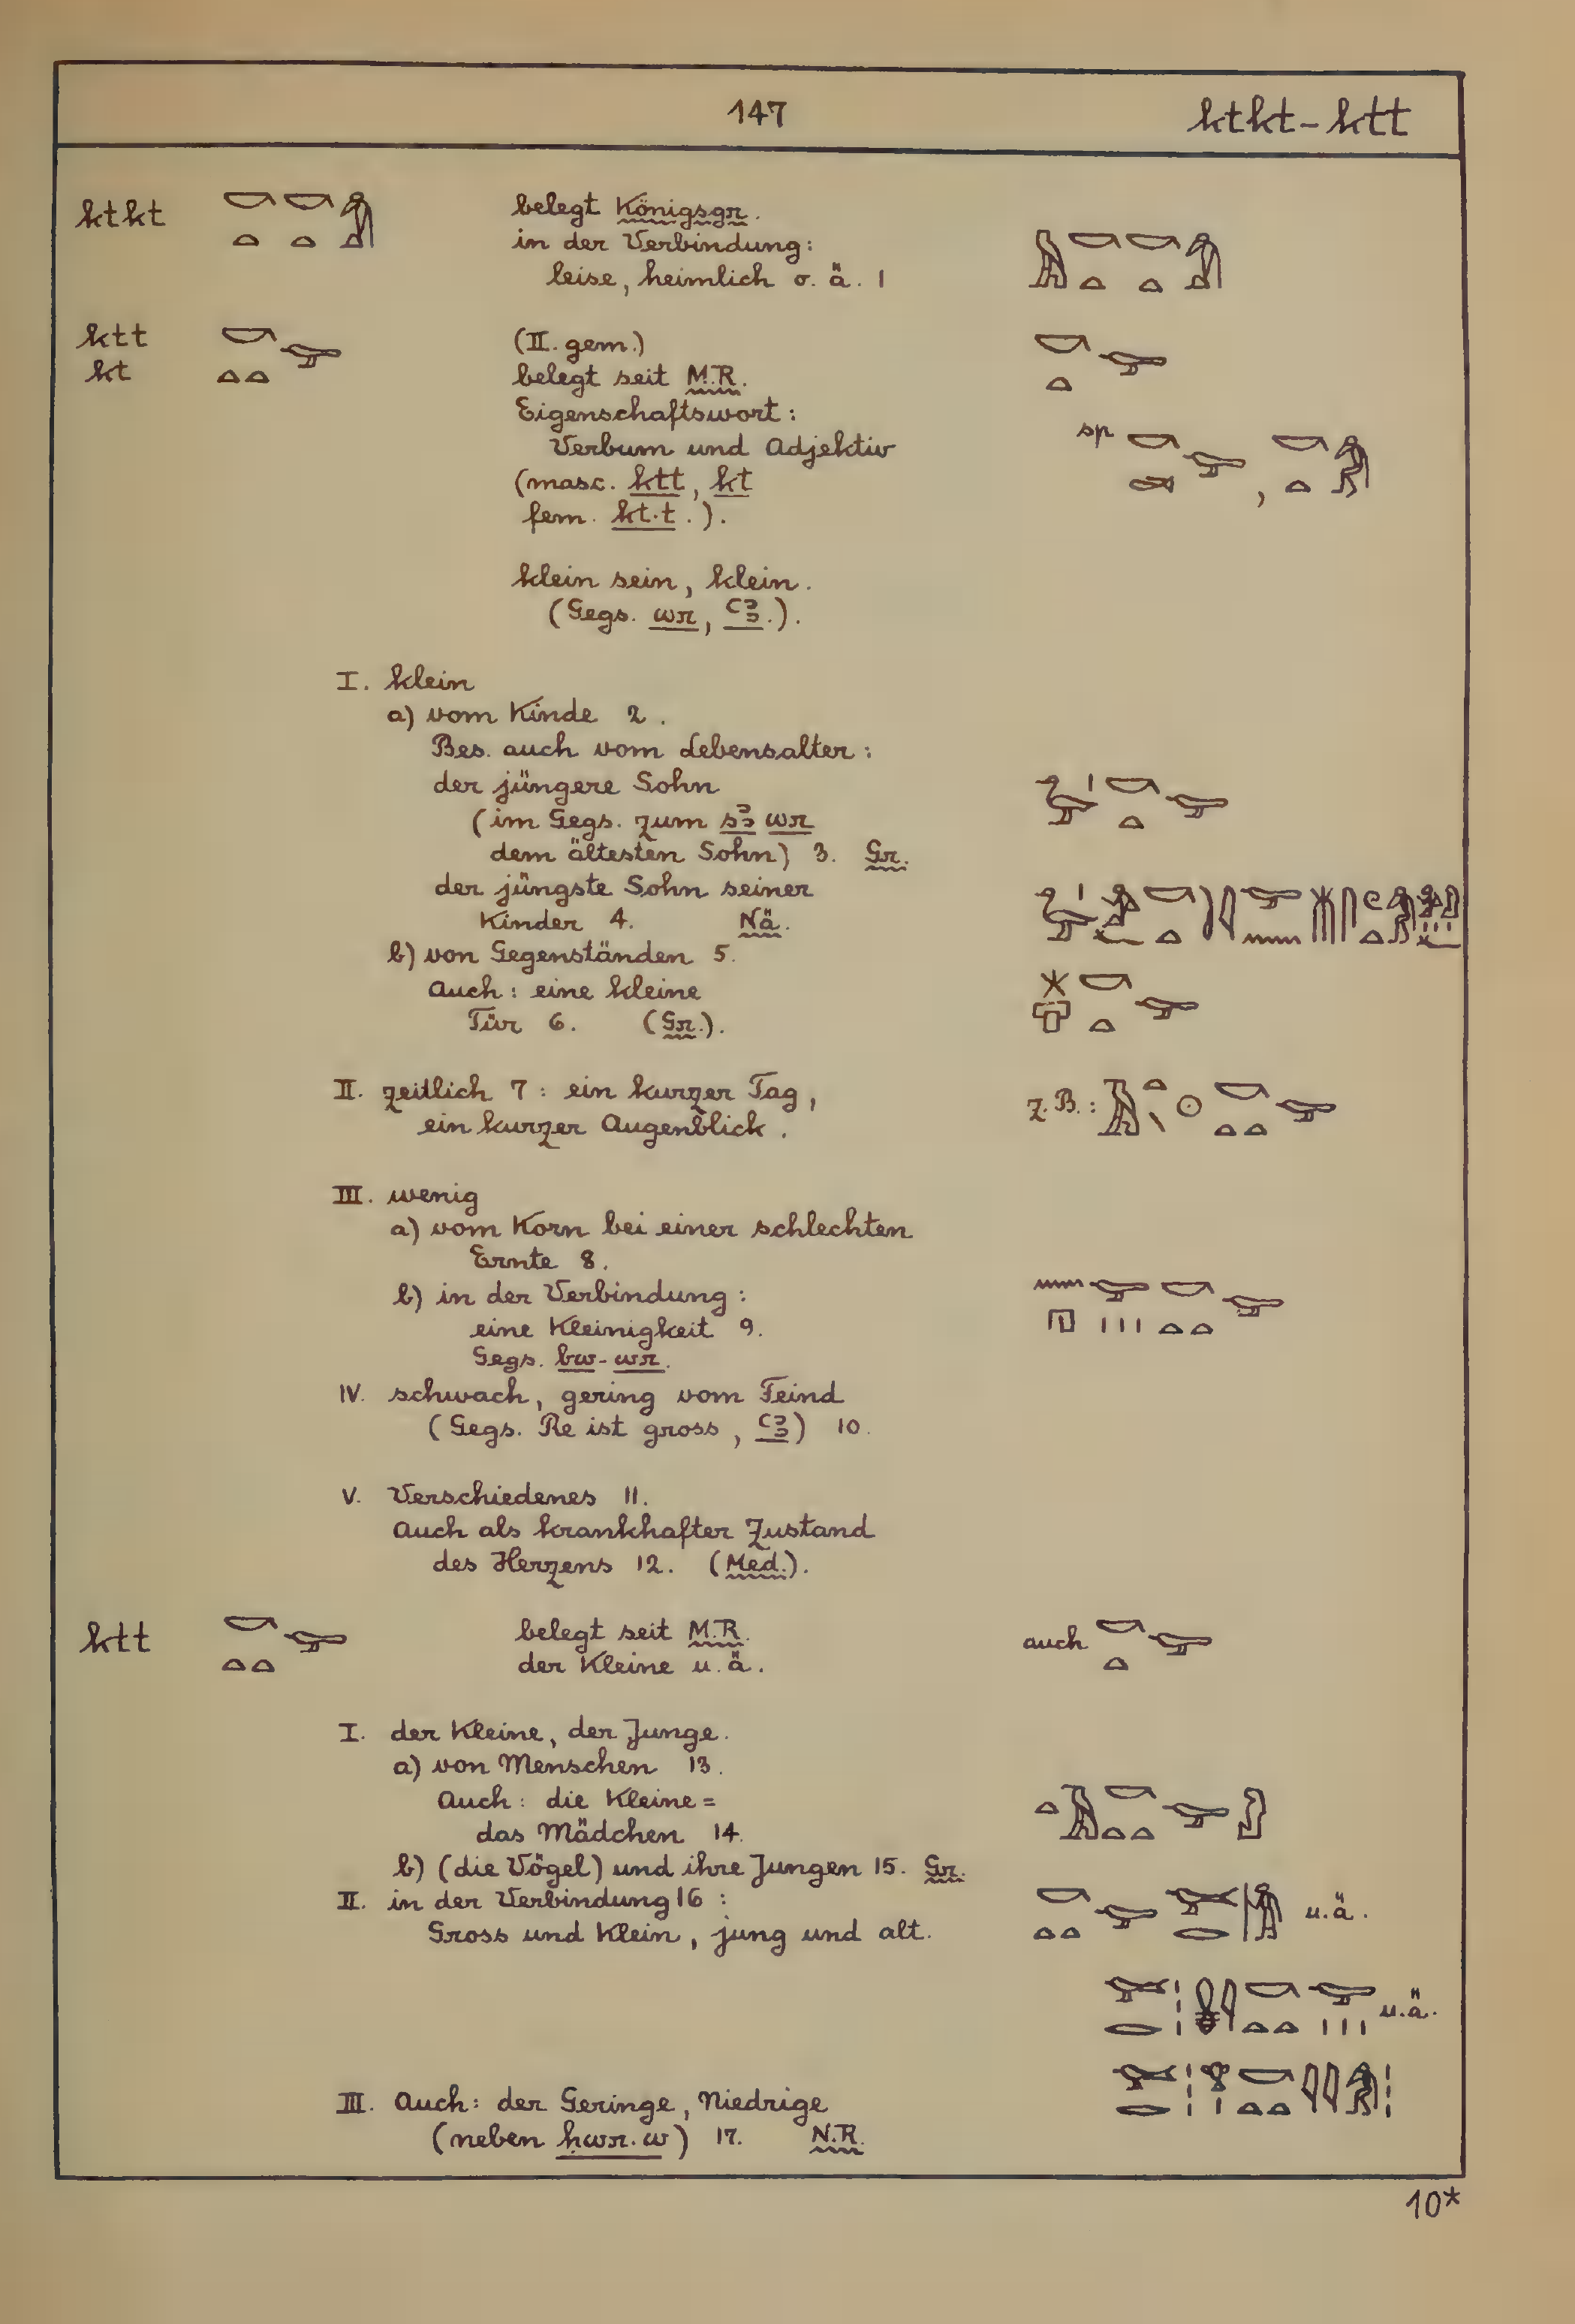 147
ktkt-ktt
ktkt
belegt Königsgr.
in der Verbindung:
leise, heimlich o. ä. 1
ktt
kt
(II. gem.)
belegt seit M.R.
Eigenschaftswort:
Verbum und Adjektiv
sp
(masc. ktt, kt
fem. kt.t.).
klein sein, klein.
(Gegs. wr, ꜥꜣ.).
I. klein
a) vom Kinde 2.
Bes. auch vom Lebensalter:
der jüngere Sohn
(im Gegs. zum sꜣ wr
dem ältesten Sohn) 3. Gr.
der jüngste Sohn seiner
Kinder 4. Nä.
b) von Gegenständen 5.
Auch: eine kleine
Tür 6. (Gr.).
II. zeitlich 7: ein kurzer Tag, z.B.:
ein kurzer Augenblick.
III. wenig
a) vom Korn bei einer schlechten
Ernte 8.
b) in der Verbindung:
eine Kleinigkeit 9.
Gegs. bw-wr.
IV. schwach, gering vom Feind
(Gegs. Re ist gross, ꜥꜣ) 10.
V. Verschiedenes 11.
Auch als krankhafter Zustand
des Herzens 12. (Med.).
ktt
belegt seit M.R. auch
der Kleine u. ä.
I. der Kleine, der Junge.
a) von Menschen 13.
Auch: die Kleine =
das Mädchen 14.
b) (die Vögel) und ihre Jungen 15. Gr.
II. in der Verbindung 16: u.ä.
Gross und Klein, jung und alt.
u.ä.
III. Auch: der Geringe, Niedrige
(neben ḥwr.w) 17. N.R.
10*